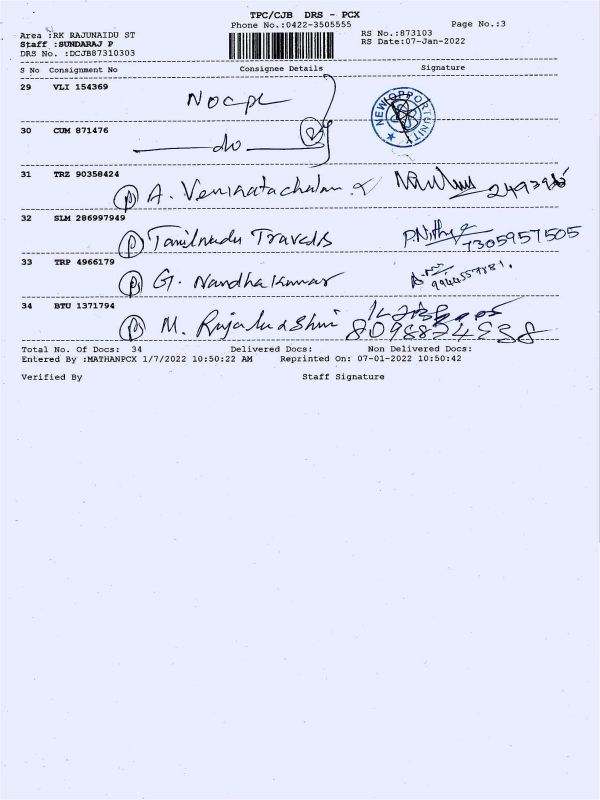 TPC/CJB DRS - PCX
Phone No.:0422-3505555 Page No.:3
Area :RK RAJUNAIDU ST RS No.:873103
Staff :SUNDARAJ P RS Date:07-Jan-2022
DRS No. :DCJB87310303
S No Consignment No Consignee Details Signature
29 VLI 154369
Nocpl NEW OPPORTUNITY
30 CUM 871476
do
31 TRZ 90358424
A. Venkatachalam
32 SLM 286997949
Tamilnadu Travels P.Nithya
7305957505
33 TRP 4966179
G. Nandhakumar
34 BTU 1371794
M. Rajalakshmi
Total No. Of Docs: 34 Delivered Docs: Non Delivered Docs:
Entered By :MATHANPCX 1/7/2022 10:50:22 AM Reprinted On: 07-01-2022 10:50:42
Verified By Staff Signature